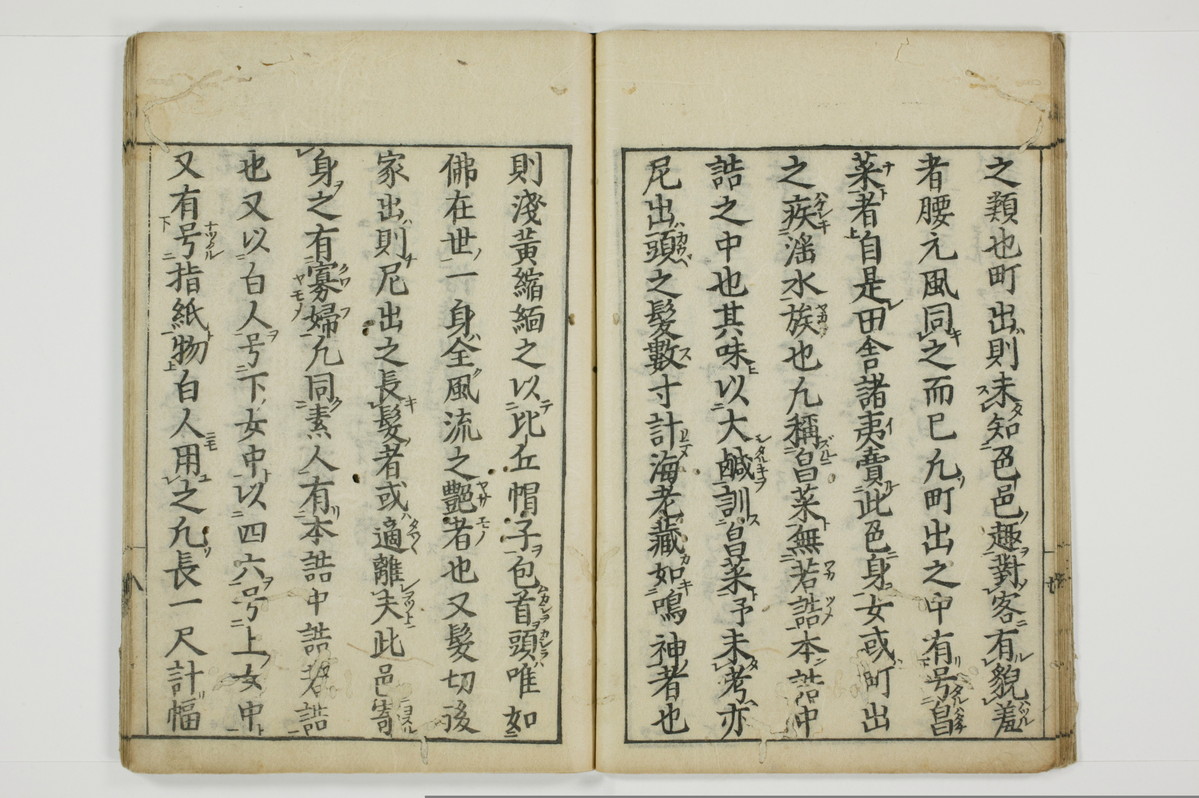 之類也町出則未知邑邑趣對客有貌羞
者腰元風同之而已凢町出之中有号昌
菜者自是田舎諸夷賣此邑身女或町出
之疾滛水族也凢稱昌菜無若誥本誥中
誥之中也其味以大鹹訓昌菜予未考亦
尼出頭之髮數寸計海老藏如鳴神者也
則淺黄縮緬之以比丘帽子包首頭唯如
佛在世一身全風流之艶者也又髮切後
家出則尼出之長髮者或適離夫此邑寄
身之有寡婦凢同素人有本誥中誥若誥
也又以白人号下女中以四六号上女中
又有号指紙物白人用之凢長一尺計幅